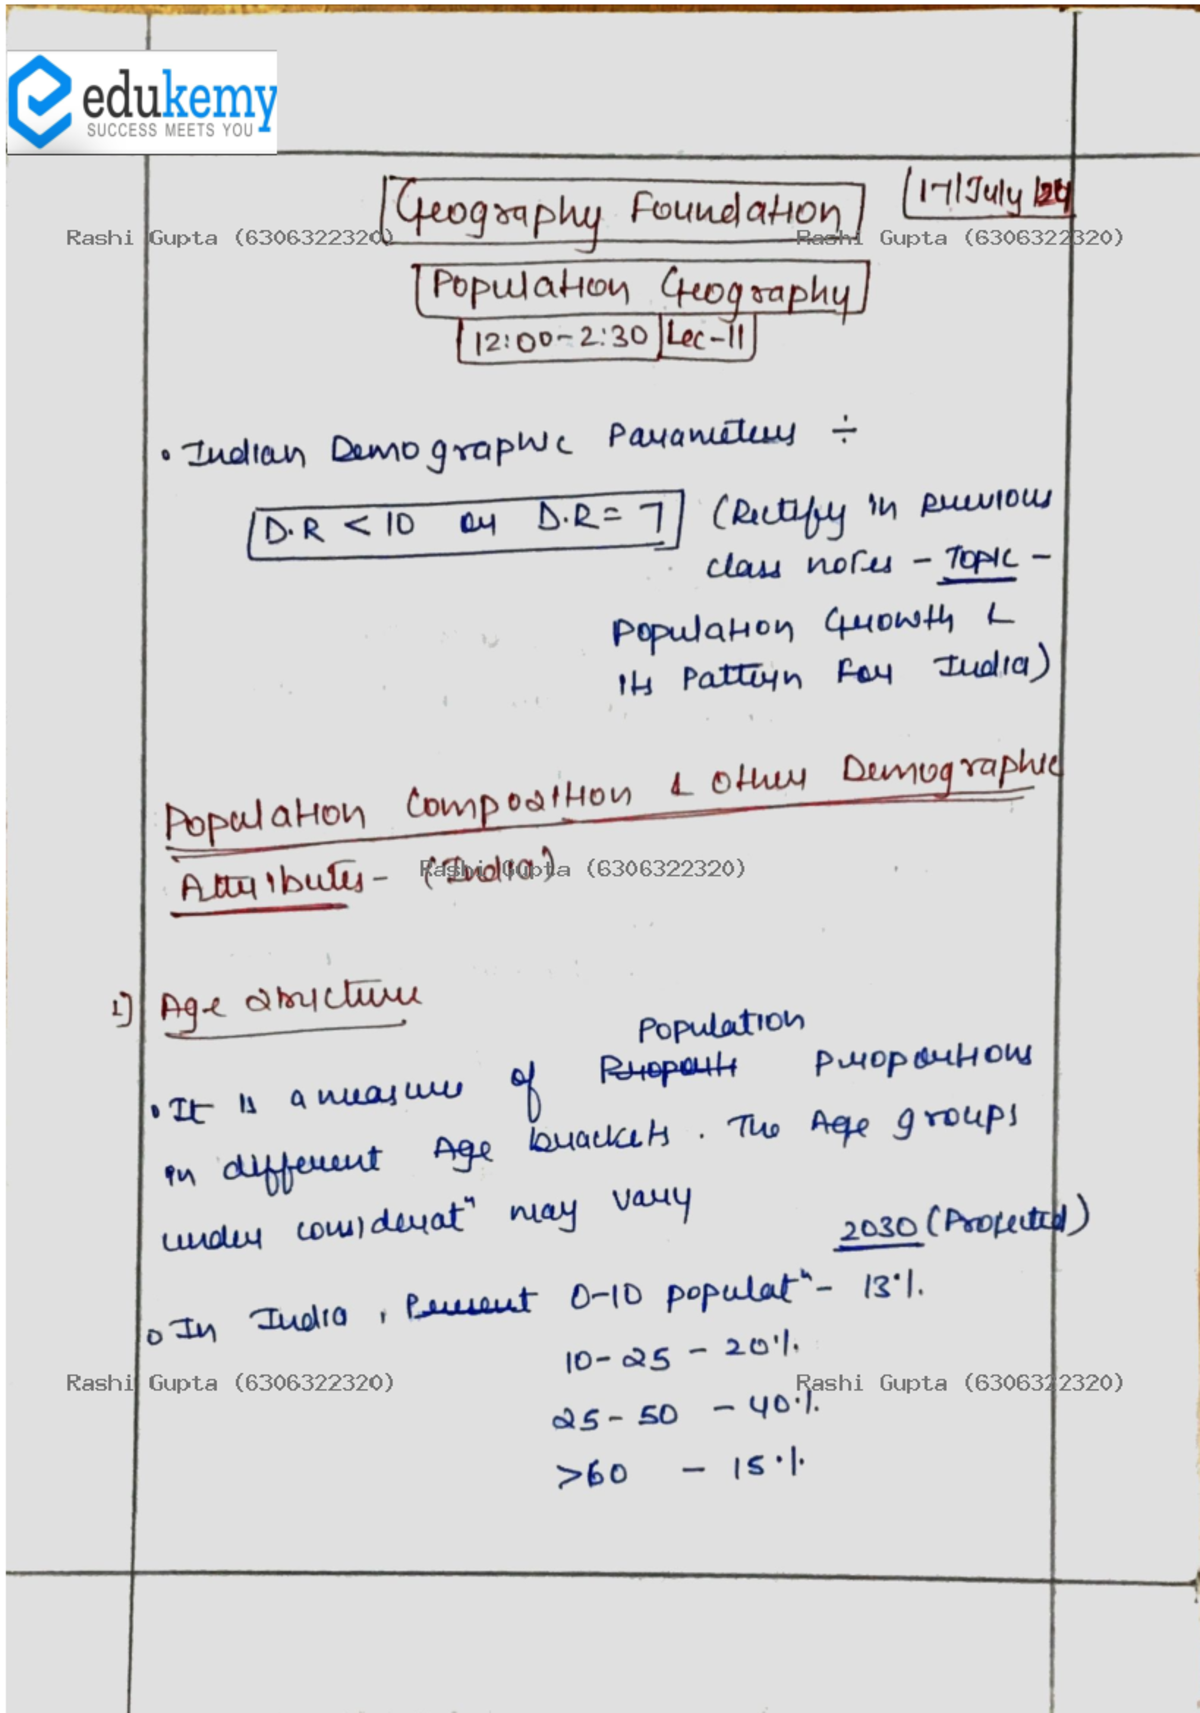 edukemy
SUCCESS MEETS YOU
Geography Foundation
17/July/24
Rashi Gupta (6306322320)
Rashi Gupta (6306322320)
Population Geography
12:00-2:30 Lec-11
• Indian Demographic Parameters ÷
D.R < 10 or D.R = 7 (Rectify in previous
class notes - TOPIC -
Population Growth &
its Pattern For India)
Population Composition & Other Demographic
Attributes - (India)
Rashi Gupta (6306322320)
1] Age structure
Population
• It is a measure of Proporti Proportions
in different Age brackets. The Age groups
under consideratⁿ may vary
2030 (Projected)
o In India, Present 0-10 populatⁿ - 13%.
10-25 - 20%.
Rashi Gupta (6306322320)
Rashi Gupta (6306322320)
25-50 - 40%.
>60 - 15%.